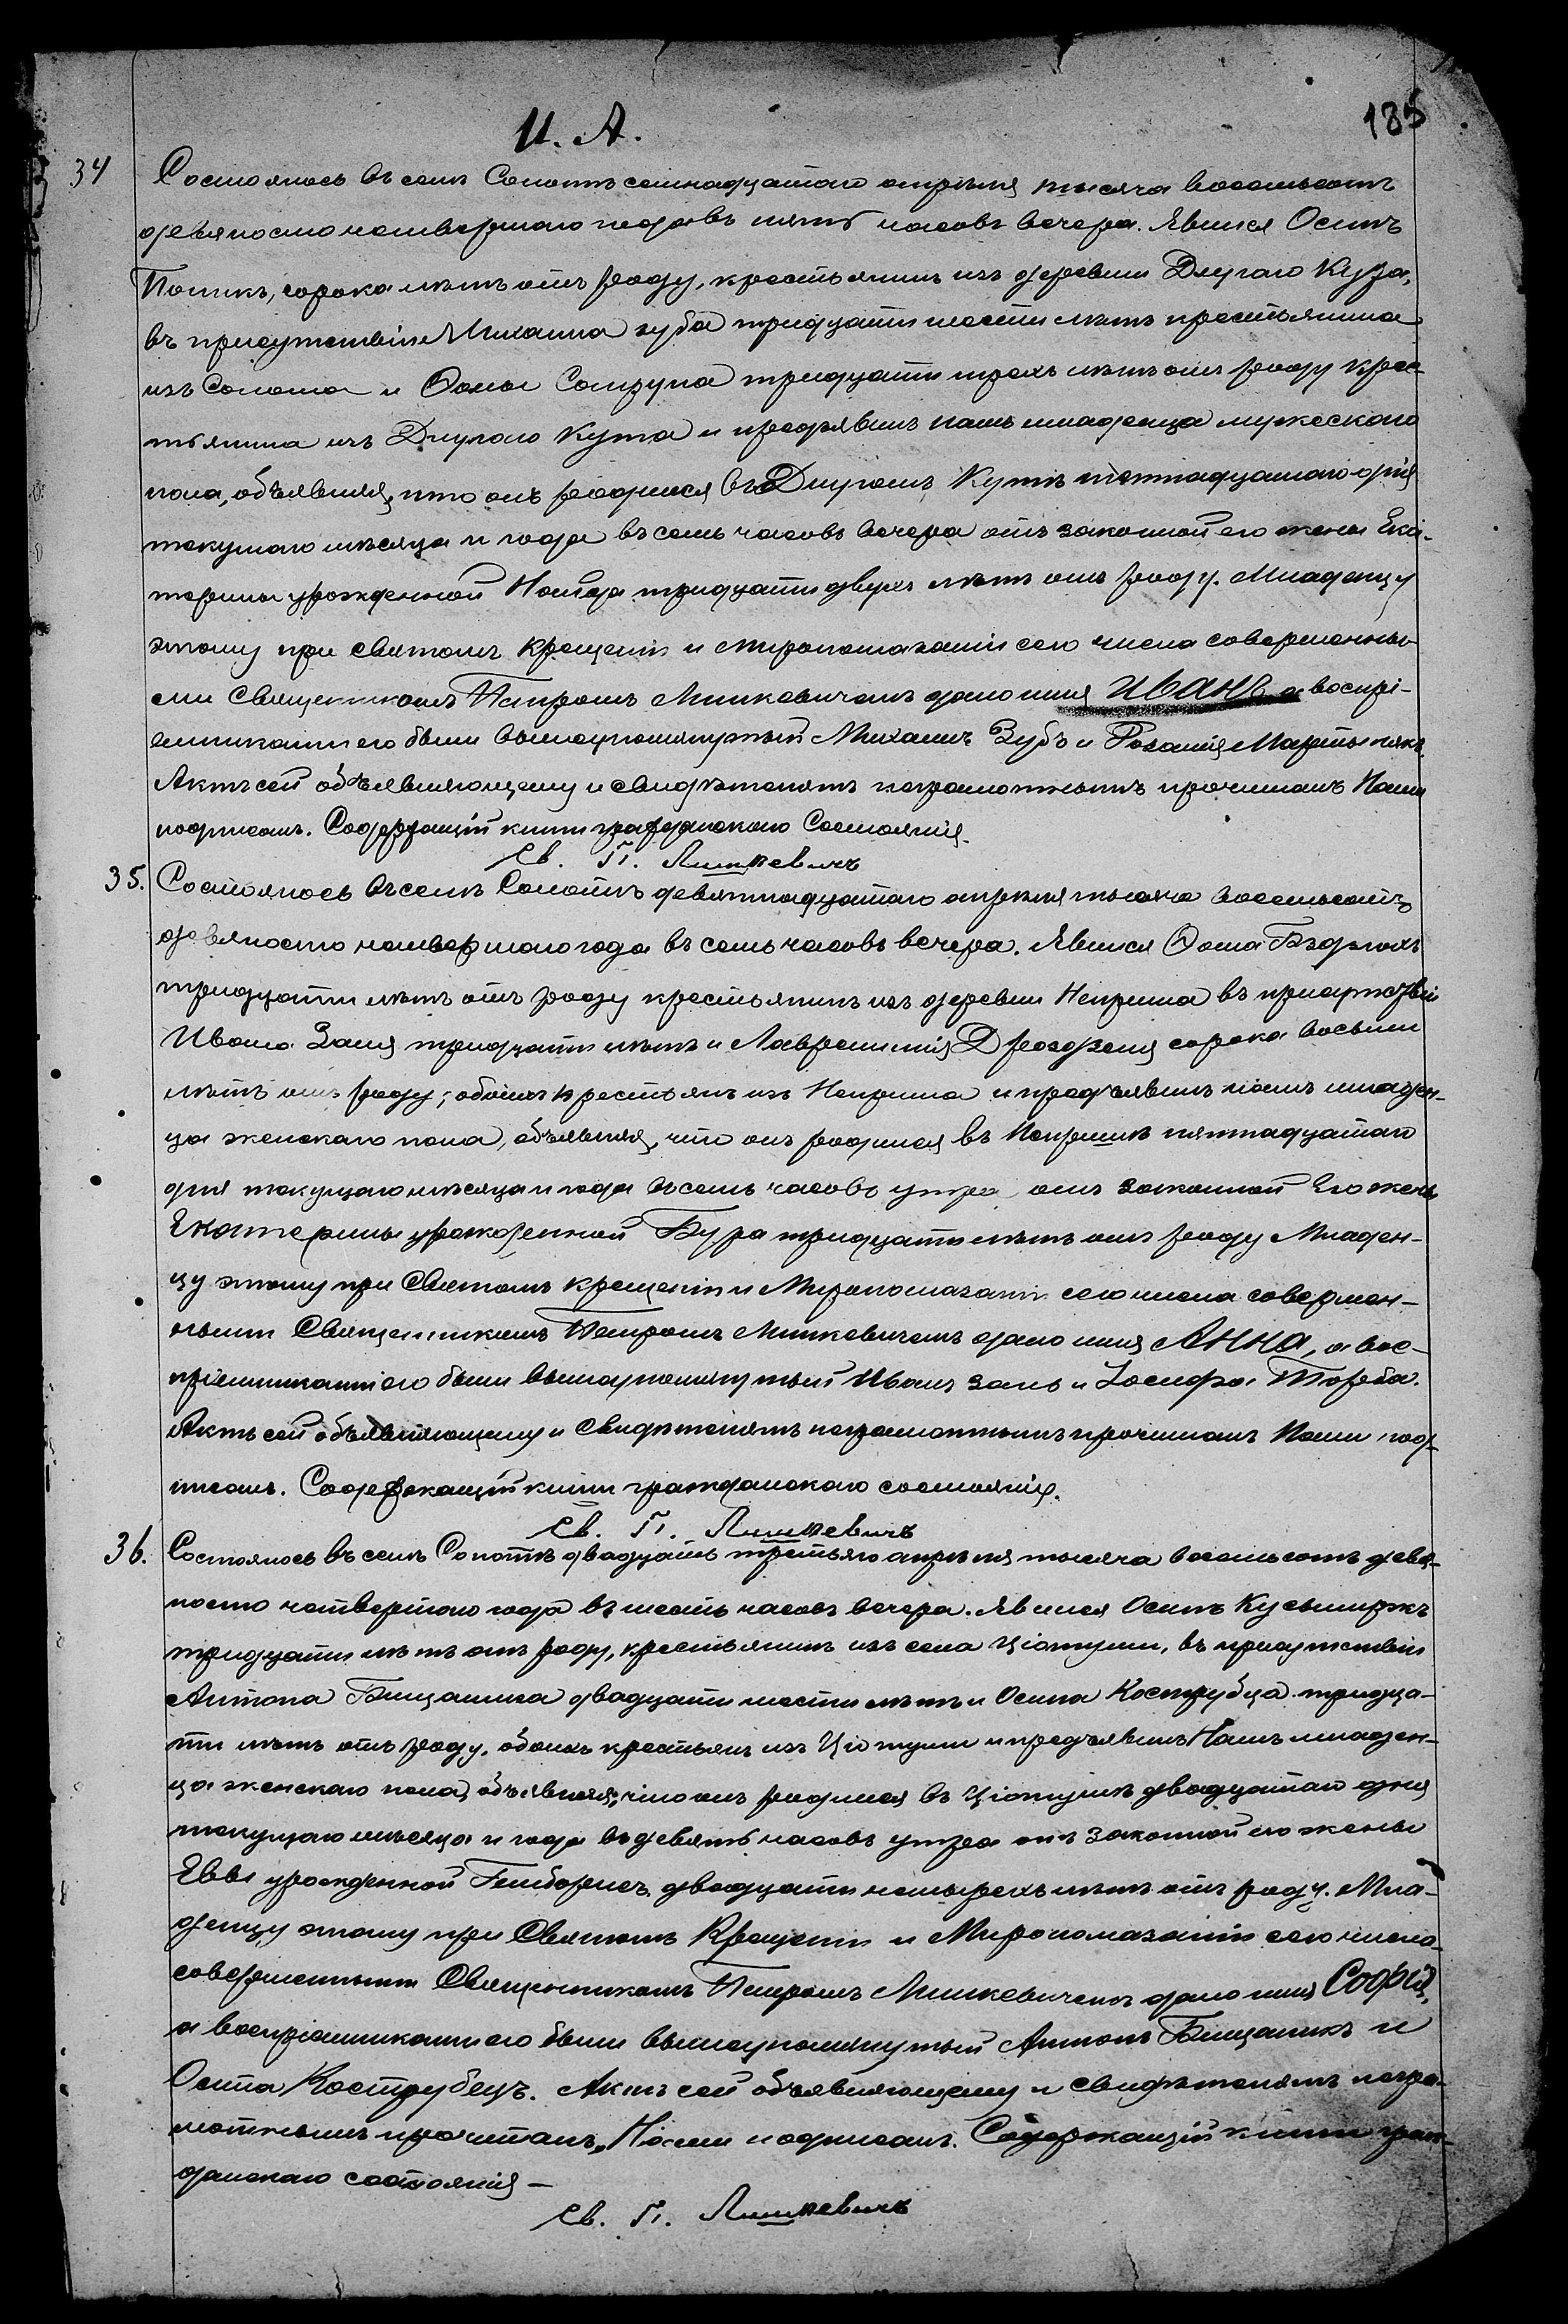 И. А.
185
34
Состоялось въ селѣ Сопотѣ семнадцатаго апрѣля тысяча восемьсотъ
девяносто четвертаго года въ пять часовъ вечера. Явился Осипъ
сорока лѣтъ отъ роду, крестьянинъ изъ деревни Длугаго Кута,
въ присутствіи Михаила Зуба тридцати шести лѣтъ крестьянина
изъ Сопота и Ѳомы тридцати трехъ лѣтъ отъ роду крес-
тьянина изъ Длугаго Кута и предъявилъ намъ младенца мужескаго
пола, объявляя, что онъ родился въ Длугомъ Кутѣ дня
текущаго мѣсяца и года въ семь часовъ вечера отъ законной его жены Ека-
терины урожденной тридцати двухъ лѣтъ отъ роду. Младенцу
этому при святомъ крещеніи и миропомазаніи сего числа совершенны-
ми Священникомъ Петромъ дано имя Иванъ а воспрі-
емниками его были вышеупомянутый Михаилъ Зубъ и Розалія Мартынякъ.
Актъ сей объявляющему и свидѣтелямъ неграмотнымъ прочитанъ Нами
подписанъ. Содержащій книги гражданскаго Состоянія.
Св. П.
35.
Состоялось въ селѣ Сопотѣ девятнадцатаго апрѣля тысяча восемьсотъ
девяносто четвертаго года въ семь часовъ вечера. Явился Ѳома
тридцати лѣтъ отъ роду крестьянинъ изъ деревни Неприша въ присутствіи
Ивана Заня тридцати лѣтъ и Лаврентія сорока восьми
лѣтъ отъ роду; обоихъ крестьянъ изъ Неприша и предъявилъ намъ младен-
ца женскаго пола, объявляя, что онъ родился въ Непришѣ пятнадцатаго
дня текущаго мѣсяца и года въ семь часовъ утра отъ законной его жены
Екатерины урожденной Бура тридцати лѣтъ отъ роду Младен-
цу этому при Святомъ крещеніи и Миропомазаніи сего числа совершен-
ными Священникомъ Петромъ дано имя Анна, а вос-
пріемниками его были вышеупомянутый Иванъ Зань и Іосифа Торба.
Актъ сей объявляющему и свидѣтелямъ неграмотнымъ прочитанъ Нами под-
писанъ. Содержащій книги гражданскаго состоянія.
Св. П.
36.
Состоялось въ селѣ Сопотѣ двадцать третьяго апрѣля тысяча восемьсотъ девя-
носто четвертаго года въ шесть часовъ вечера. Явился Осипъ
тридцати лѣтъ отъ роду, крестьянинъ изъ села Ціотуши, въ присутствіи
Антона двадцати шести лѣтъ и Осипа Кострубца тридца-
ти лѣтъ отъ роду, обоихъ крестьянъ изъ Ціотуши и предъявилъ Намъ младен-
ца женскаго пола, объявляя, что онъ родился въ Ціотушѣ двадцатаго дня
текущаго мѣсяца и года въ девять часовъ утра отъ законной его жены
Еввы урожденной двадцати четырехъ лѣтъ отъ роду. Мла-
денцу этому при Святомъ Крещеніи и Миропомазаніи сего числа
совершенными Священникомъ Петромъ дано имя Софія,
а воспріемниками его были вышеупомянутый Антонъ и
Осипа Кострубецъ. Актъ сей объявляющему и свидѣтелямъ негра-
мотнымъ прочитанъ, Нами подписанъ. Содержащій книги граж-
данскаго состоянія —
Св. П.